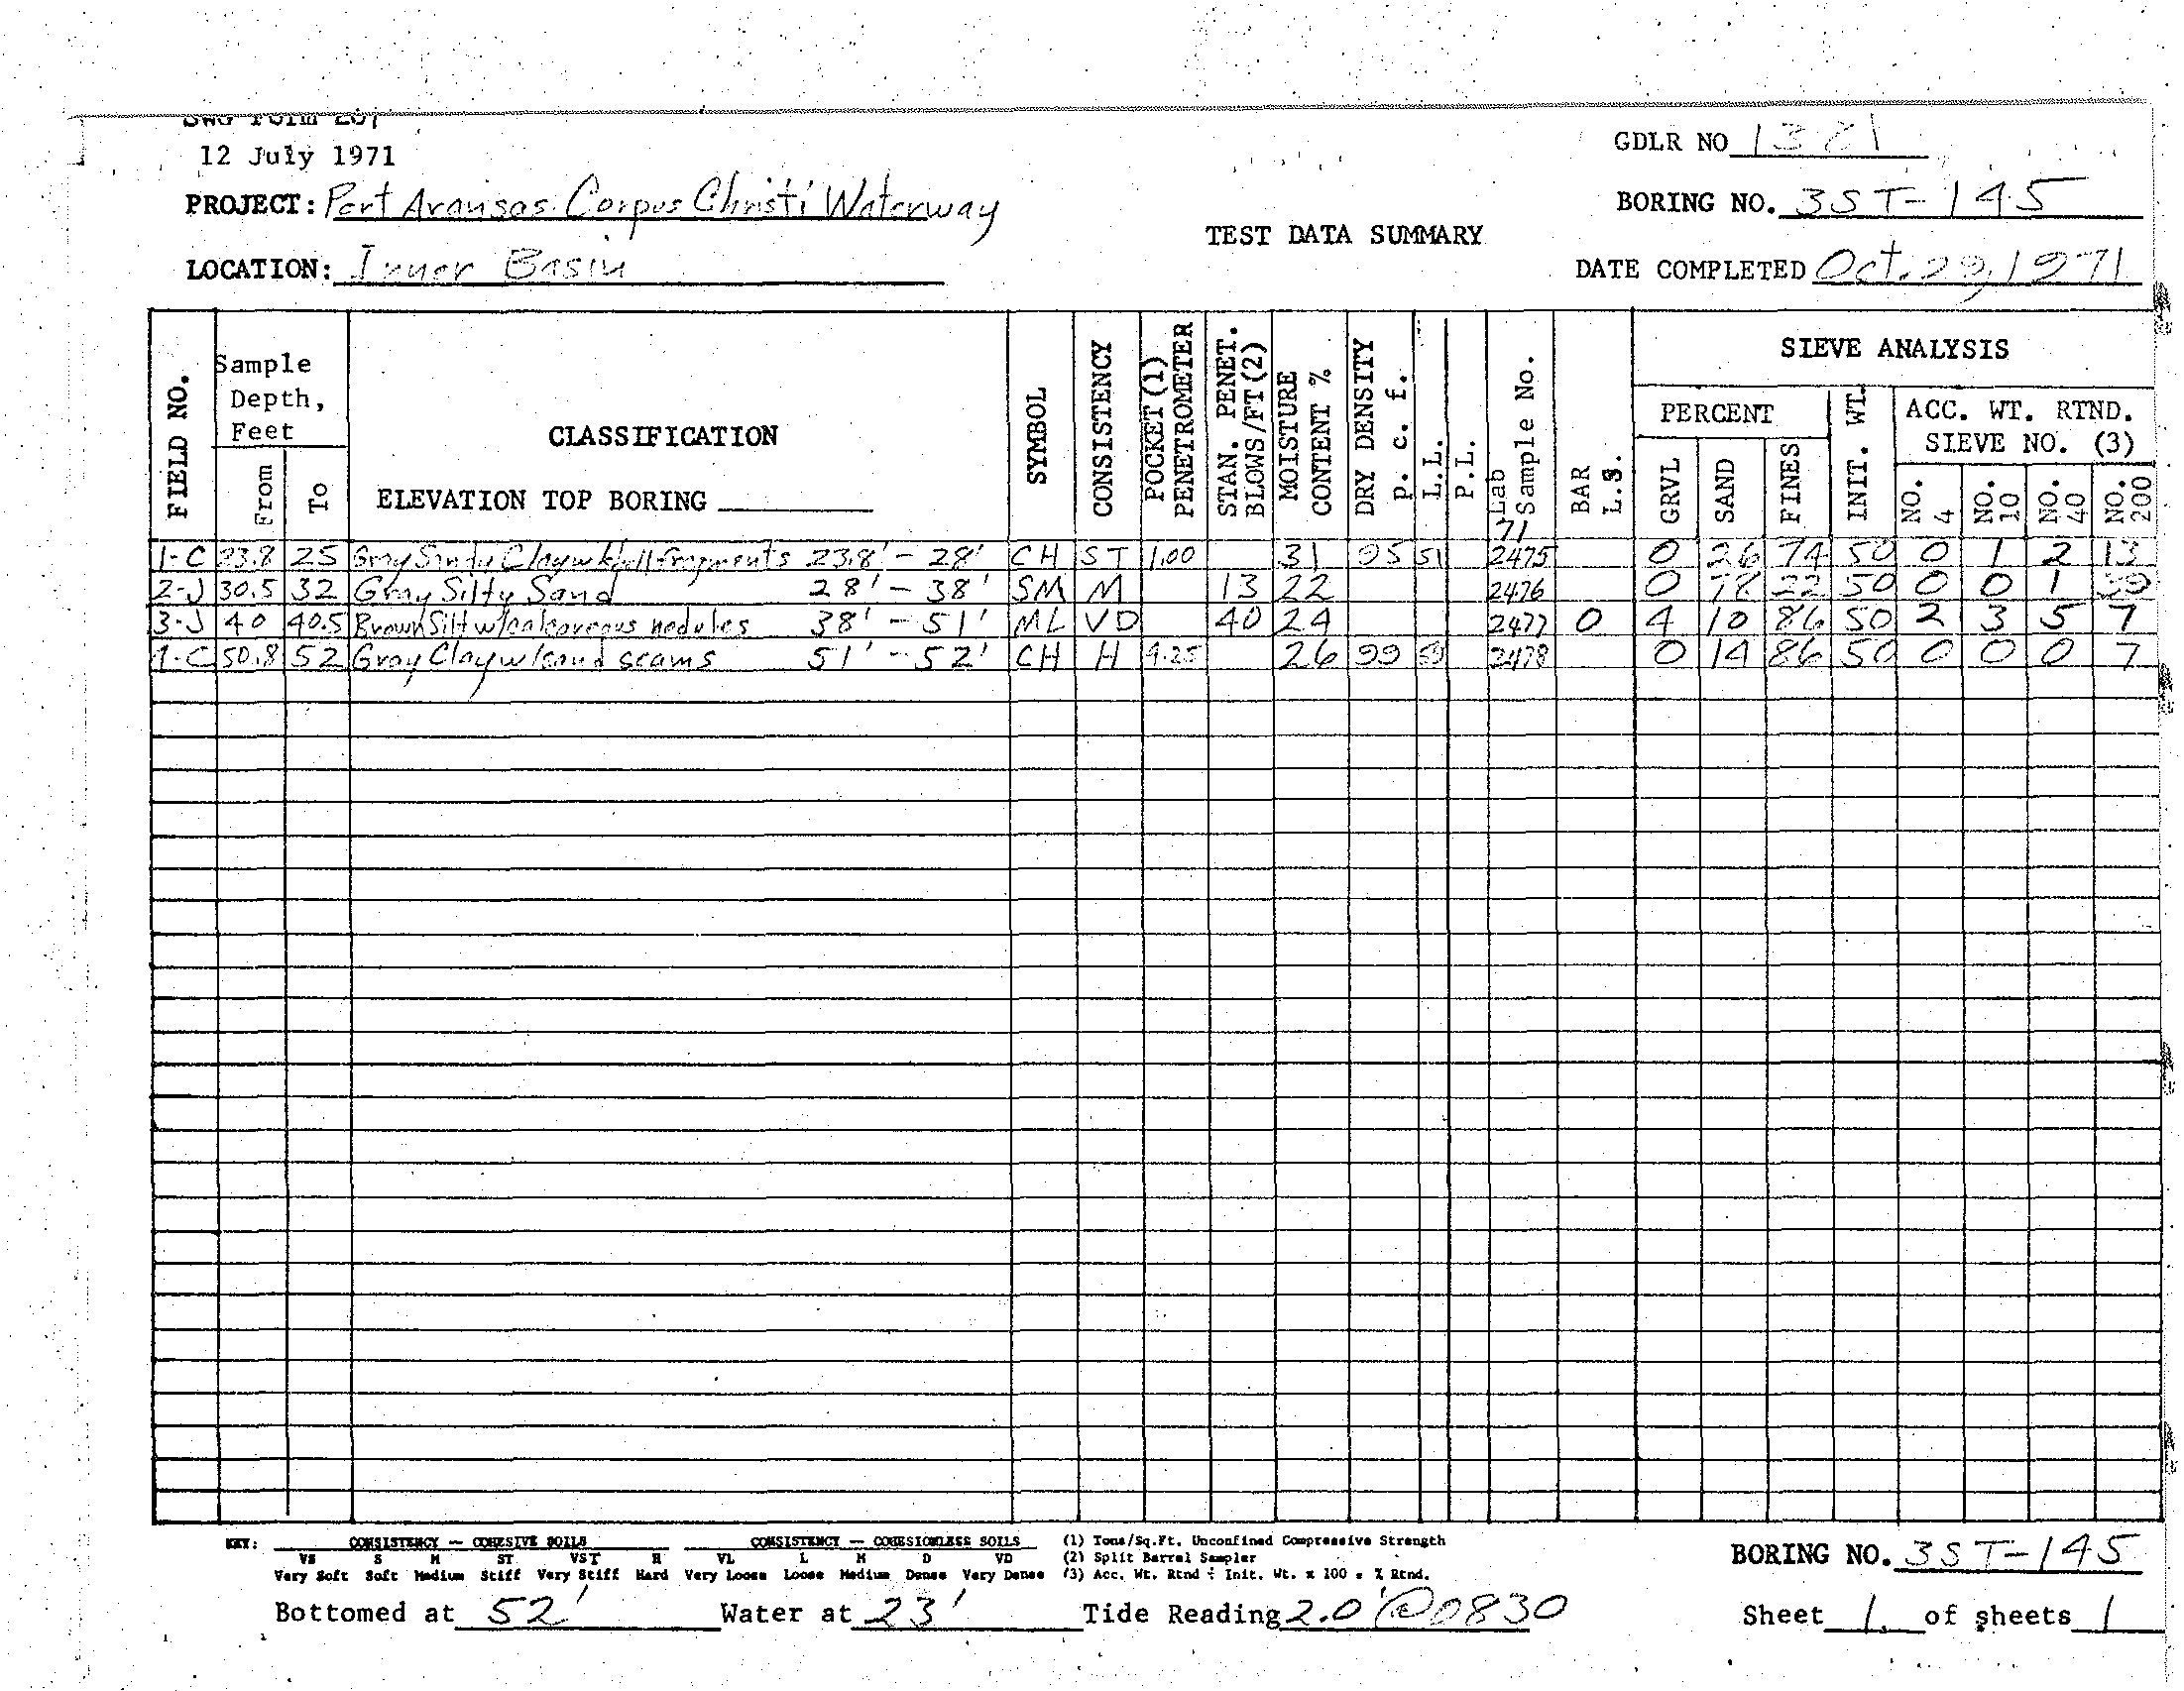 12 July 1971
GDLR NO 1321
PROJECT: Port Aransas Corpus Christi Waterway
BORING NO. 3ST-145
TEST DATA SUMMARY
LOCATION: Inner Basin
DATE COMPLETED Oct. 29, 1971
FIELD NO.
Sample Depth, Feet
From
To
CLASSIFICATION
ELEVATION TOP BORING
SYMBOL
CONSISTENCY
POCKET (1) PENETROMETER
STAN. PENET. BLOWS/FT (2)
MOISTURE CONTENT %
DRY DENSITY p. c. f.
L.L.
P.L.
Lab Sample No.
71
BAR L.S.
SIEVE ANALYSIS
PERCENT
GRVL
SAND
FINES
INIT. WT.
ACC. WT. RTND. SIEVE NO. (3)
NO. 4
NO. 10
NO. 40
NO. 200
1-C 23.8 25 Gray Sandy Clay w/shell fragments 23.8' - 28' CH ST 1.00 31 95 51 2475 0 26 74 50 0 1 2 13
2-J 30.5 32 Gray Silty Sand 28' - 38' SM M 13 22 2476 0 78 22 50 0 0 1 39
3-J 40 40.5 Brown Silt w/calcareous nodules 38' - 51' ML VD 40 24 2477 0 4 10 86 50 2 3 5 7
4-C 50.8 52 Gray Clay w/sand seams 51' - 52' CH H 4.25 26 99 59 2478 0 14 86 50 0 0 0 7
KEY: CONSISTENCY — COHESIVE SOILS CONSISTENCY — COHESIONLESS SOILS (1) Tons/Sq.Ft. Unconfined Compressive Strength
VS S M ST VST H VL L M D VD (2) Split Barrel Sampler
Very Soft Soft Medium Stiff Very Stiff Hard Very Loose Loose Medium Dense Very Dense (3) Acc. Wt. Rtnd ÷ Init. Wt. x 100 = % Rtnd.
BORING NO. 3ST-145
Bottomed at 52' Water at 23' Tide Reading 2.0' @ 0830 Sheet 1 of sheets 1